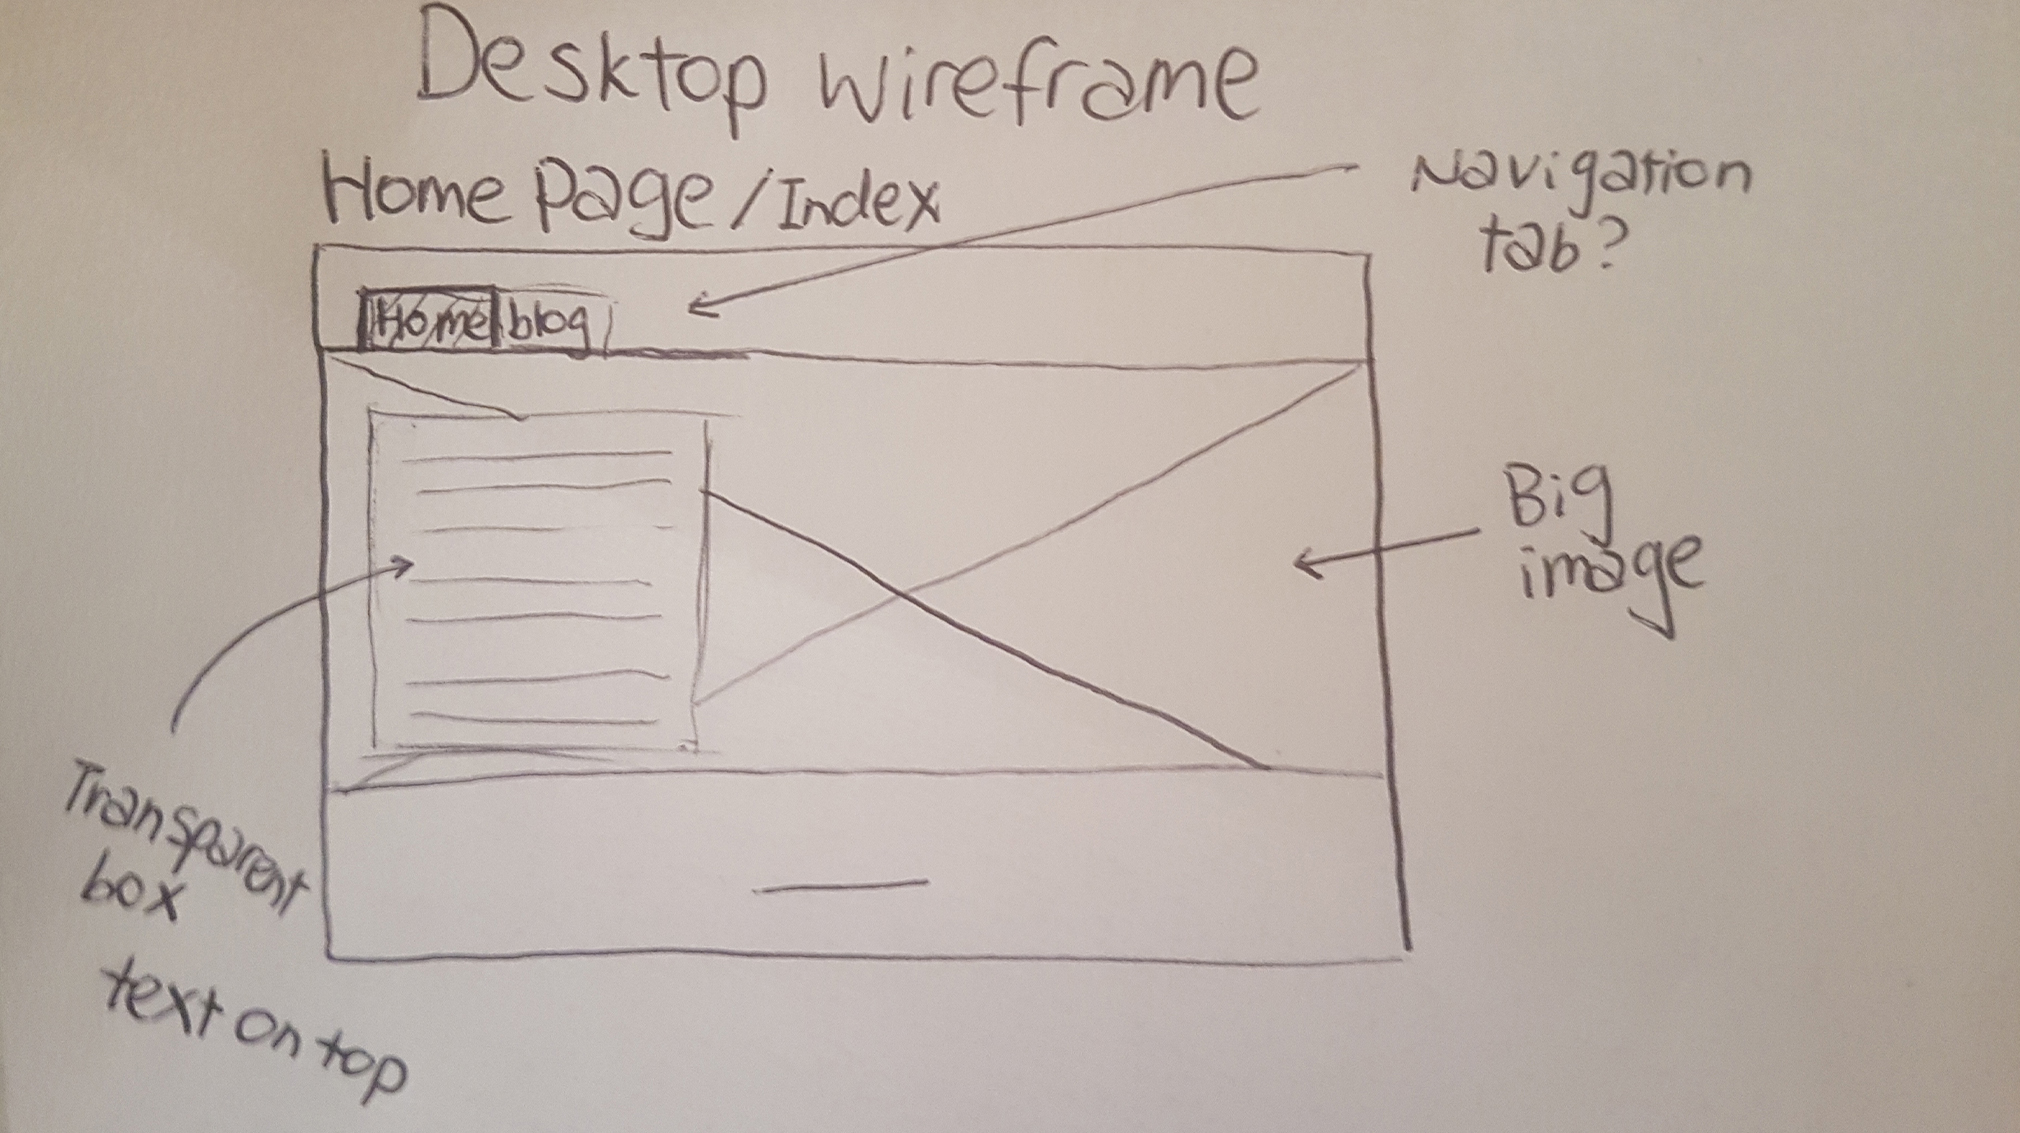 Desktop wireframe
Home Page/Index
Navigation
tab?
Home blog
Big
image
Transparent
box
text on top